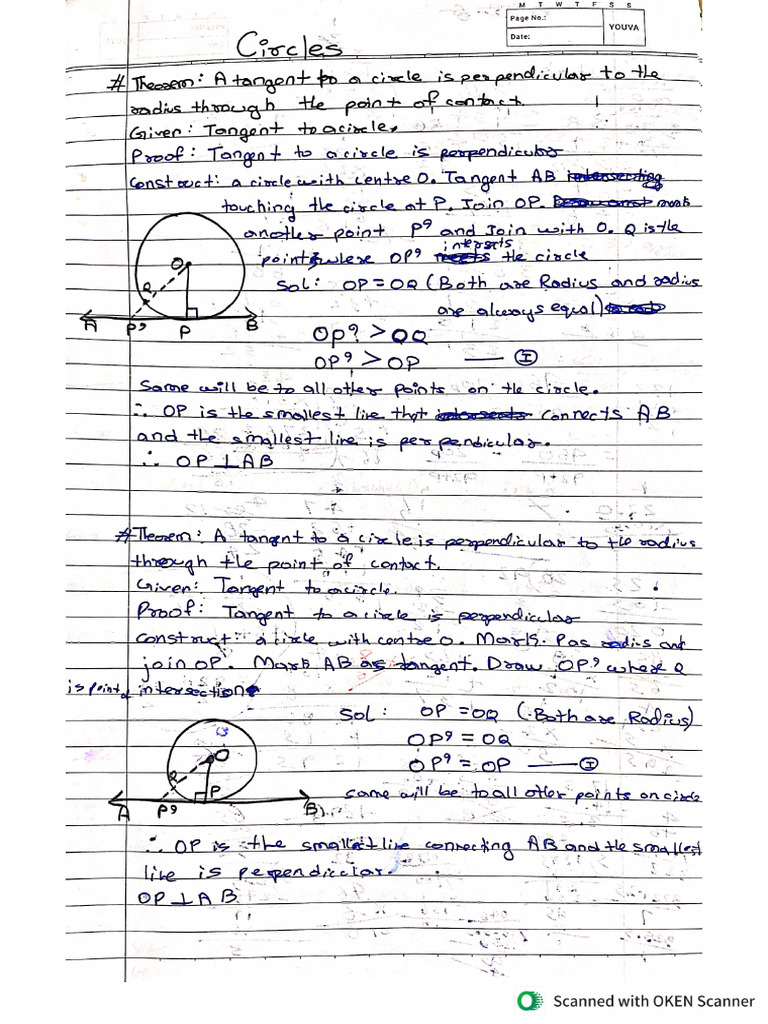 M T W T F S S
Page No.:
Date:
YOUVA
Circles
# Theorem: A tangent to a circle is perpendicular to the
radius through the point of contact.
Given: Tangent to a circle.
Proof: Tangent to a circle is perpendicular
Construct: a circle with centre O. Tangent AB intersecting
touching the circle at P. Join OP. mark
another point P' and Join with O. Q is the
point where OP' meets intersects the circle
Sol: OP = OQ (Both are Radius and radius
are always equal)
OP' > OQ
OP' > OP — I
Same will be to all other points on the circle.
∴ OP is the smallest line that intersects connects AB
and the smallest line is perpendicular.
∴ OP ⊥ AB
O
Q
A P' P B
# Theorem: A tangent to a circle is perpendicular to the radius
through the point of contact.
Given: Tangent to a circle.
Proof: Tangent to a circle is perpendicular
Construct: a circle with centre O. Mark P as radius and
join OP. Mark AB as tangent. Draw OP' where Q
is point of intersection
Sol: OP = OQ (∵ Both are Radius)
OP' = OQ
OP' = OP — I
same will be to all other points on circle
O
Q
P
A P' B
∴ OP is the smallest line connecting AB and the smallest
line is perpendicular.
OP ⊥ AB
Scanned with OKEN Scanner